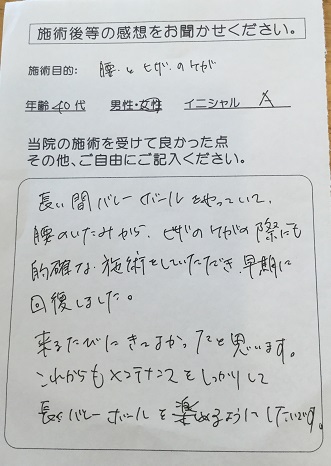 施術後等の感想をお聞かせください。
施術目的: 腰とヒザのケガ
年齢 40代 男性・女性 イニシャル A
当院の施術を受けて良かった点
その他、ご自由にご記入ください。
長い間バレーボールをやっていて、
腰のいたみから、ヒザのケガの際にも
的確な施術をしていただき、早期に
回復しました。
来るたびにきてよかったと思います。
これからもメンテナンスをしっかりして
長くバレーボールを楽しめるようにしたいです。